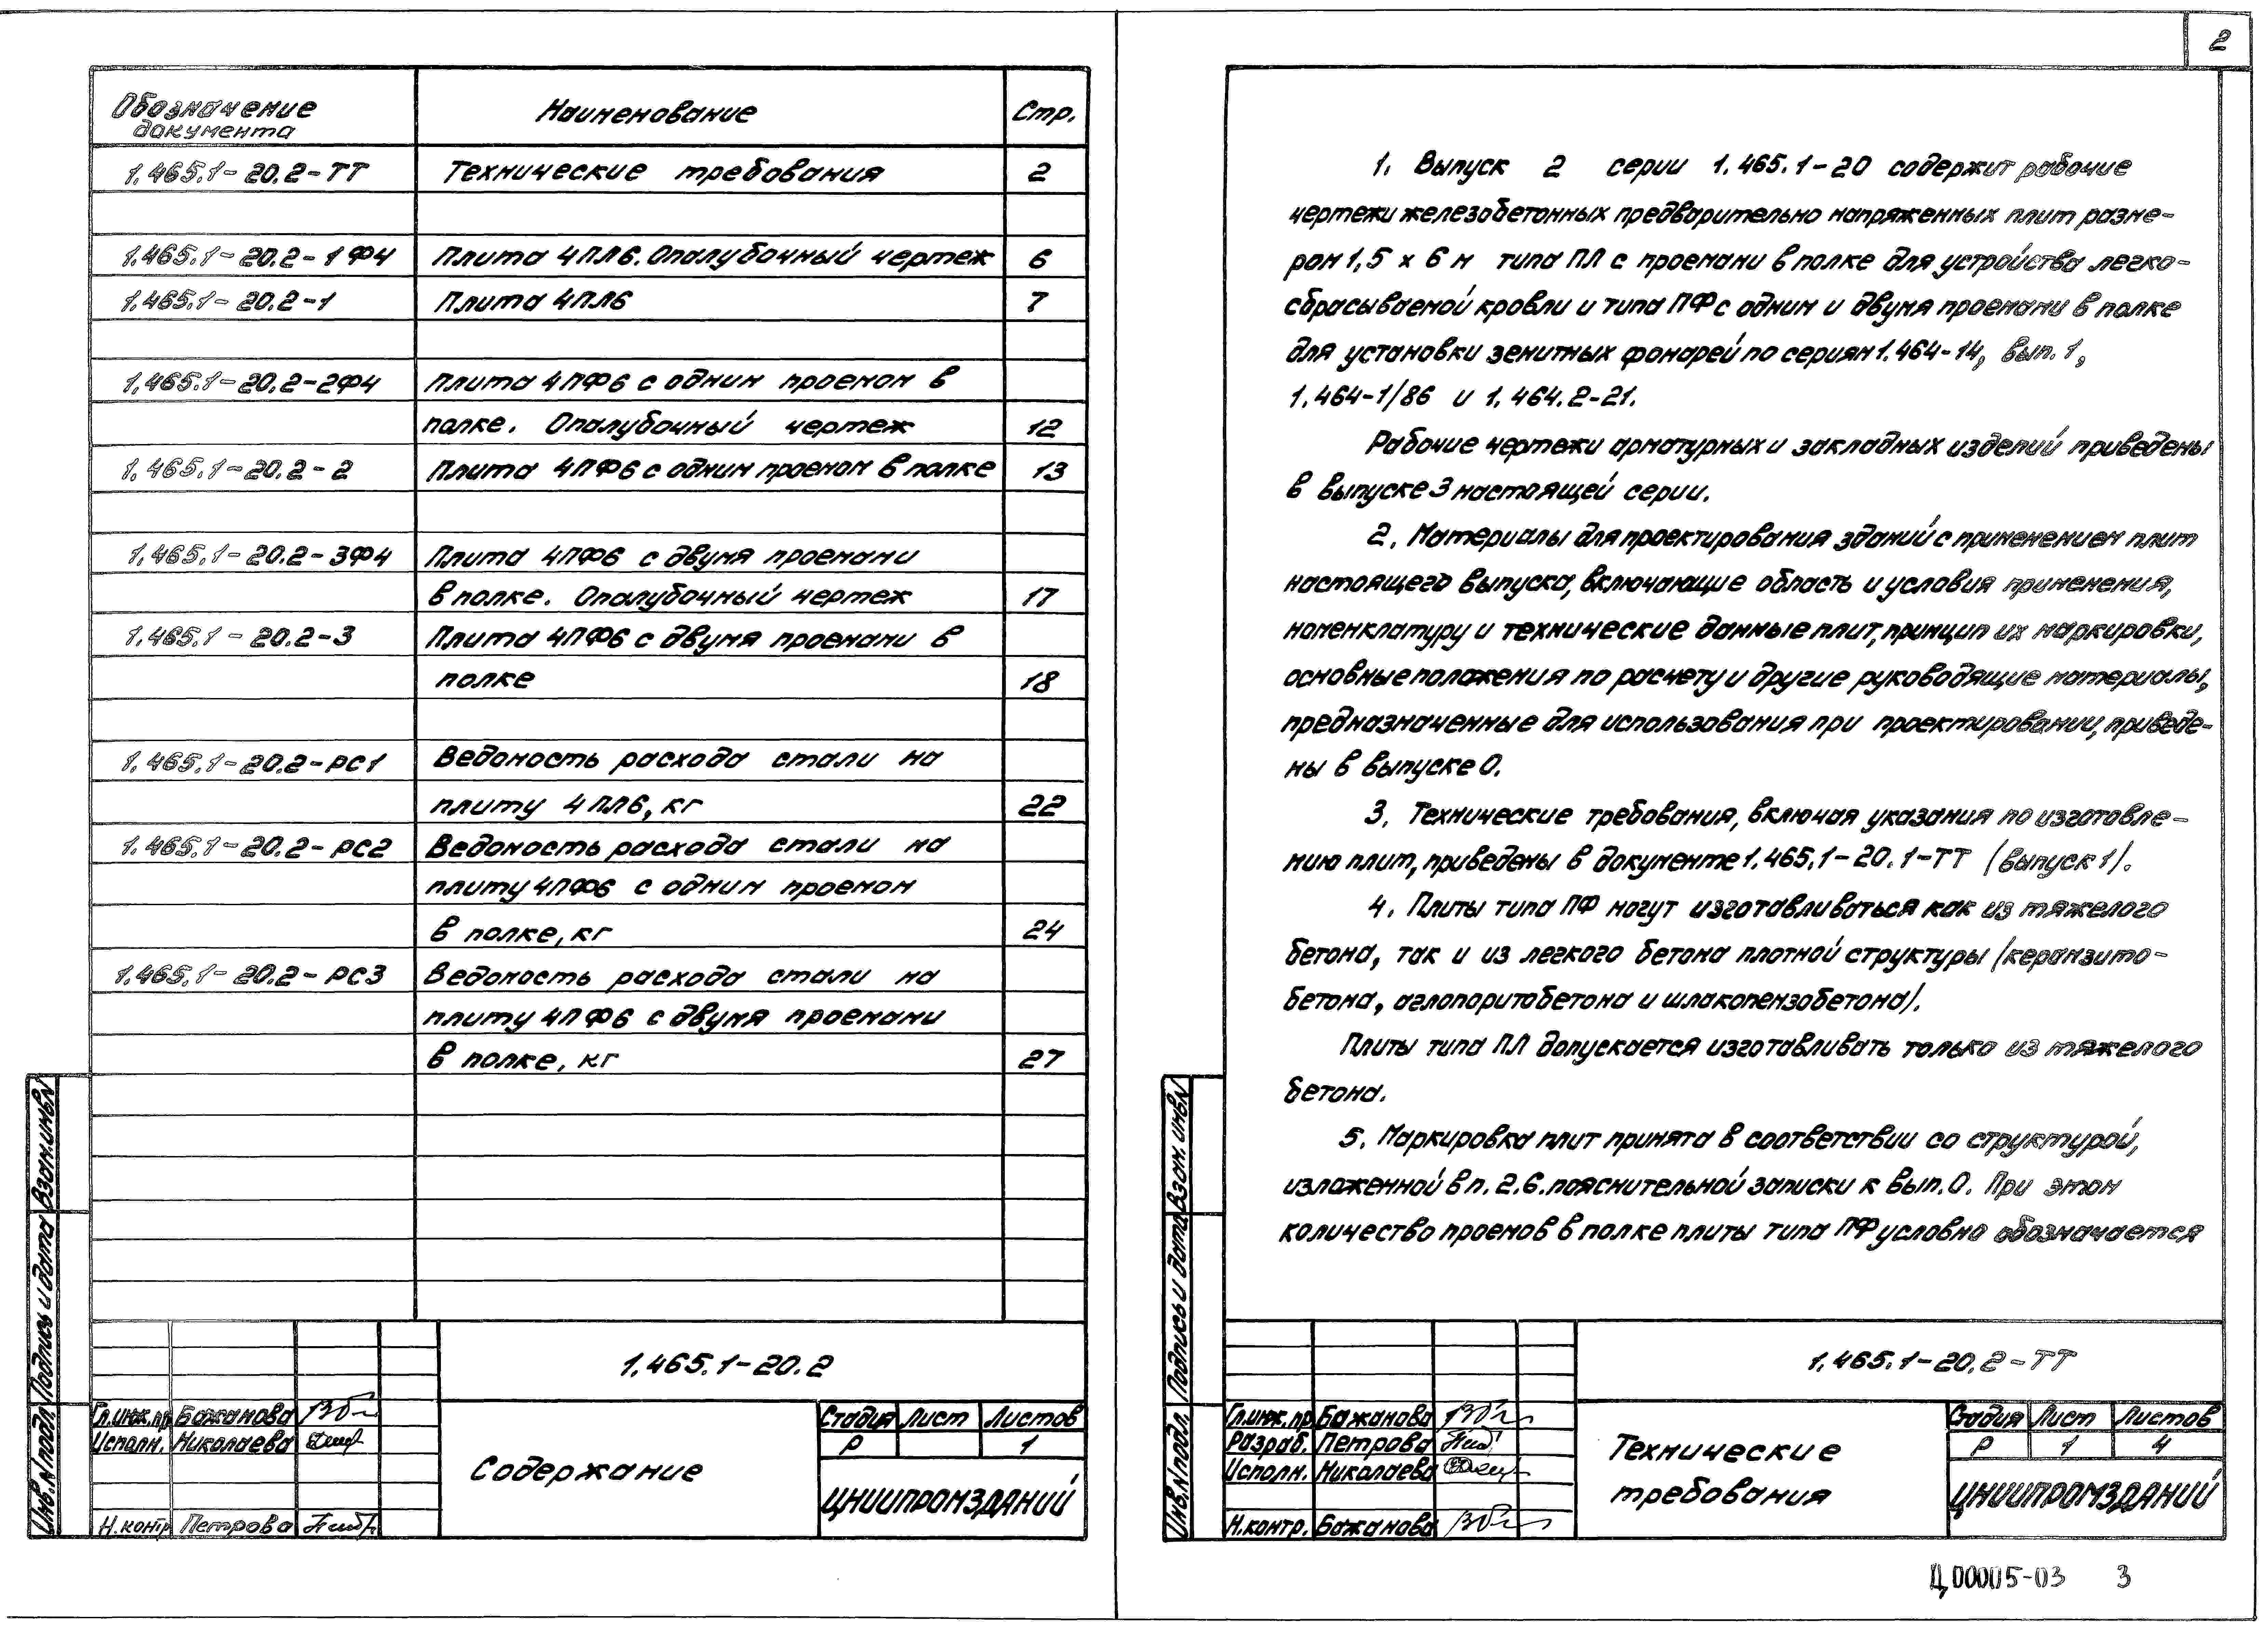 Обозначение документа	Наименование	Стр.
1.465.1-20.2-ТТ	Технические требования	2
1.465.1-20.2-1Ф4	Плита 4ПЛ6. Опалубочный чертеж	6
1.465.1-20.2-1	Плита 4ПЛ6	7
1.465.1-20.2-2Ф4	Плита 4ПФ6 с одним проемом в
полке. Опалубочный чертеж	12
1.465.1-20.2-2	Плита 4ПФ6 с одним проемом в полке	13
1.465.1-20.2-3Ф4	Плита 4ПФ6 с двумя проемами
в полке. Опалубочный чертеж	17
1.465.1-20.2-3	Плита 4ПФ6 с двумя проемами в
полке	18
1.465.1-20.2-РС1	Ведомость расхода стали на
плиту 4ПЛ6, кг	22
1.465.1-20.2-РС2	Ведомость расхода стали на
плиту 4ПФ6 с одним проемом
в полке, кг	24
1.465.1-20.2-РС3	Ведомость расхода стали на
плиту 4ПФ6 с двумя проемами
в полке, кг	27
Инв.N подл.	Подпись и дата	Взам.инв.N
1.465.1-20.2
Гл.инж.пр	Бажанова
Исполн.	Николаева
Н.контр	Петрова
Содержание
Стадия	Лист	Листов
Р		1
ЦНИИПРОМЗДАНИЙ
2
1. Выпуск 2 серии 1.465.1-20 содержит рабочие
чертежи железобетонных предварительно напряженных плит разме-
ром 1,5 х 6 м типа ПЛ с проемами в полке для устройства легко-
сбрасываемой кровли и типа ПФ с одним и двумя проемами в полке
для установки зенитных фонарей по сериям 1.464-14, вып. 1,
1.464-1/86 и 1.464.2-21.
Рабочие чертежи арматурных и закладных изделий приведены
в выпуске 3 настоящей серии.
2. Материалы для проектирования зданий с применением плит
настоящего выпуска, включающие область и условия применения,
номенклатуру и технические данные плит, принцип их маркировки,
основные положения по расчету и другие руководящие материалы,
предназначенные для использования при проектировании, приведе-
ны в выпуске 0.
3. Технические требования, включая указания по изготовле-
нию плит, приведены в документе 1.465.1-20.1-ТТ (выпуск 1).
4. Плиты типа ПФ могут изготавливаться как из тяжелого
бетона, так и из легкого бетона плотной структуры (керамзито-
бетона, аглопоритобетона и шлакопемзобетона).
Плиты типа ПЛ допускается изготавливать только из тяжелого
бетона.
5. Маркировка плит принята в соответствии со структурой,
изложенной в п. 2.6. пояснительной записки к вып. 0. При этом
количество проемов в полке плиты типа ПФ условно обозначается
Инв.N подл.	Подпись и дата	Взам.инв.N
1.465.1-20.2-ТТ
Гл.инж.пр	Бажанова
Разраб.	Петрова
Исполн.	Николаева
Н.контр.	Бажанова
Технические
требования
Стадия	Лист	Листов
Р	1	4
ЦНИИПРОМЗДАНИЙ
Ц00005-03 3